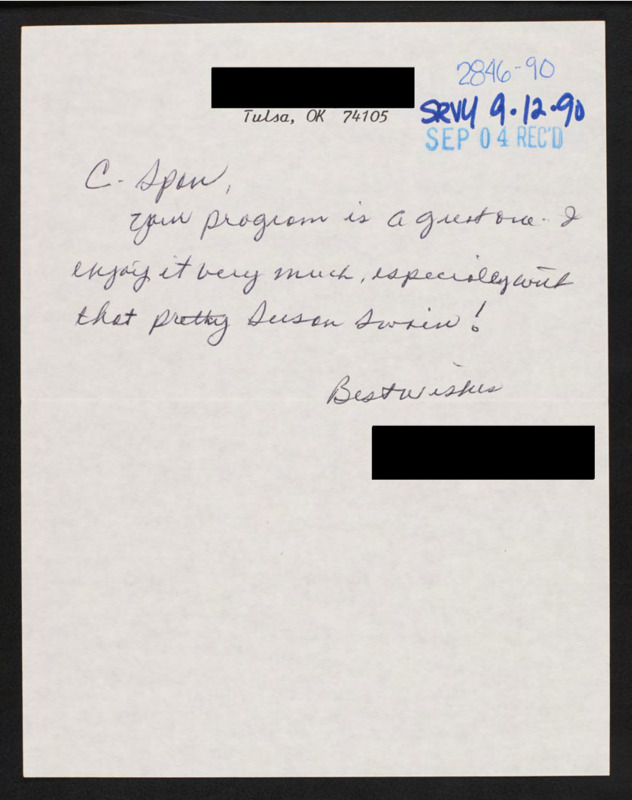 2846-90
Tulsa, OK 74105
SRVY 9·12·90
SEP 04 REC'D
C-Span,
Your program is a great one. I
enjoy it very much, especially with
that pretty Susan Swain!
Best wishes